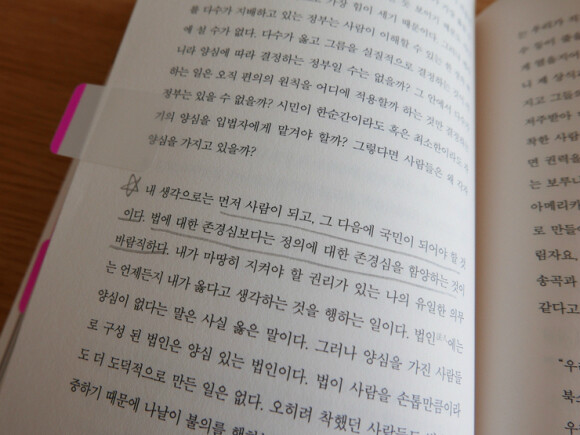 가장 힘이 세기 때문이다. 그러나
를 다수가 지배하고 있는 정부는 사람이 이해할 수 있는 한
에 설 수가 없다. 다수가 옳고 그름을 실질적으로 결정하는 것이
니라 양심에 따라 결정하는 정부일 수는 없을까? 그 안에서 다수
하는 일은 오직 편의의 원칙을 어디에 적용할까 하는 것만
정부는 있을 수 없을까? 시민이 한순간이라도 혹은 최소한이라도
기의 양심을 입법자에게 맡겨야 할까? 그렇다면 사람들은 왜
양심을 가지고 있을까?
내 생각으로는 먼저 사람이 되고, 그 다음에 국민이 되어야 할 것
이다. 법에 대한 존경심보다는 정의에 대한 존경심을 함양하는 것이
바람직하다. 내가 마땅히 지켜야 할 권리가 있는 나의 유일한 의무
는 언제든지 내가 옳다고 생각하는 것을 행하는 일이다. 법인에는
양심이 없다는 말은 사실 옳은 말이다. 그러나 양심을 가진 사람들
로 구성 된 법인은 양심 있는 법인이다. 법이 사람을 손톱만큼이라
도 더 도덕적으로 만든 일은 없다. 오히려 착했던 사람들도
중하기 때문에 나날이 불의를
는
수 등이
게 옆을
니 제 상식
지고 그들
저주받아
착한 사람
면 권력을
는 보루나
아메리카
로 만들
림자요,
송곡과
같다고
"우
북소
우